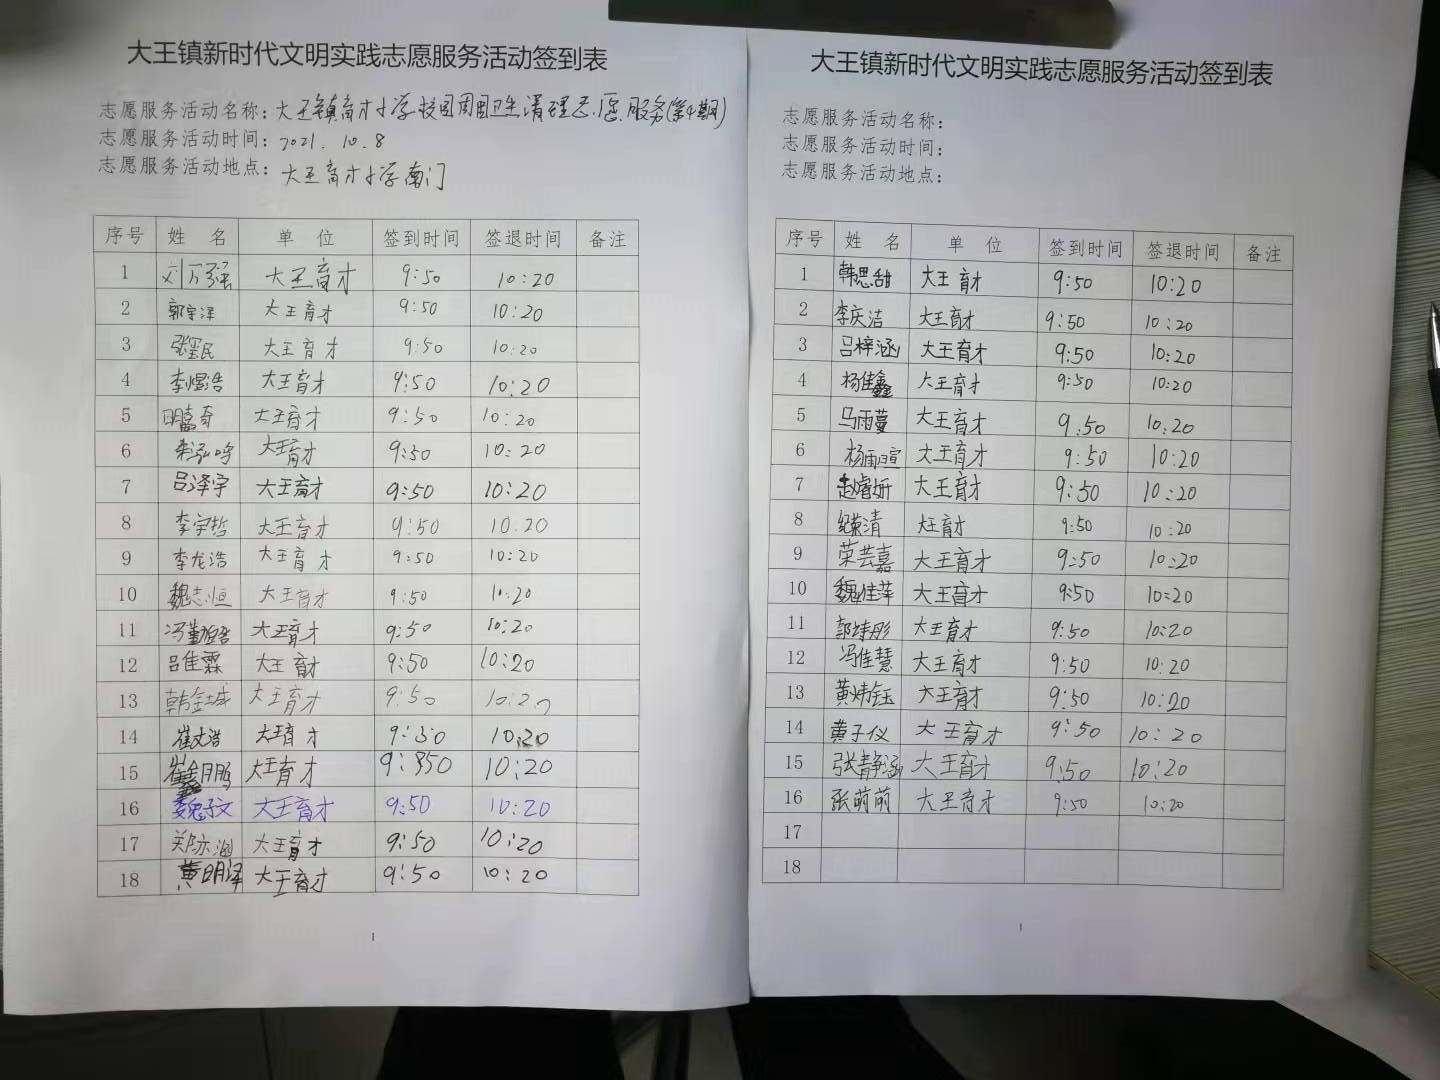 大王镇新时代文明实践志愿服务活动签到表
志愿服务活动名称：大王镇育才小学校园周围卫生清理志愿服务(第4期)
志愿服务活动时间：2021.10.8
志愿服务活动地点：大王育才小学南门
序号 姓名 单位 签到时间 签退时间 备注
1 刘万强 大王育才 9:50 10:20
2 郭宇泽 大王育才 9:50 10:20
3 张民 大王育才 9:50 10:20
4 李煜浩 大王育才 9:50 10:20
5 大王育才 9:50 10:20
6 大王育才 9:50 10:20
7 吕泽宇 大王育才 9:50 10:20
8 李宇哲 大王育才 9:50 10:20
9 李龙浩 大王育才 9:50 10:20
10 魏志恒 大王育才 9:50 10:20
11 冯 大王育才 9:50 10:20
12 吕佳霖 大王育才 9:50 10:20
13 韩金城 大王育才 9:50 10:20
14 崔文浩 大王育才 9:50 10:20
15 崔鑫鹏 大王育才 9:350 10:20
16 魏子文 大王育才 9:50 10:20
17 郑亦涵 大王育才 9:50 10:20
18 黄明泽 大王育才 9:50 10:20
1
大王镇新时代文明实践志愿服务活动签到表
志愿服务活动名称：
志愿服务活动时间：
志愿服务活动地点：
序号 姓名 单位 签到时间 签退时间 备注
1 韩思甜 大王育才 9:50 10:20
2 李庆洁 大王育才 9:50 10:20
3 吕梓涵 大王育才 9:50 10:20
4 杨佳鑫 大王育才 9:50 10:20
5 马雨蔓 大王育才 9:50 10:20
6 杨雨暄 大王育才 9:50 10:20
7 赵睿妍 大王育才 9:50 10:20
8 纪荣清 大王育才 9:50 10:20
9 荣芸嘉 大王育才 9:50 10:20
10 魏佳萍 大王育才 9:50 10:20
11 郭诗彤 大王育才 9:50 10:20
12 冯佳慧 大王育才 9:50 10:20
13 黄炜钰 大王育才 9:50 10:20
14 黄子仪 大王育才 9:50 10:20
15 张静涵 大王育才 9:50 10:20
16 张萌萌 大王育才 9:50 10:20
17
18
1